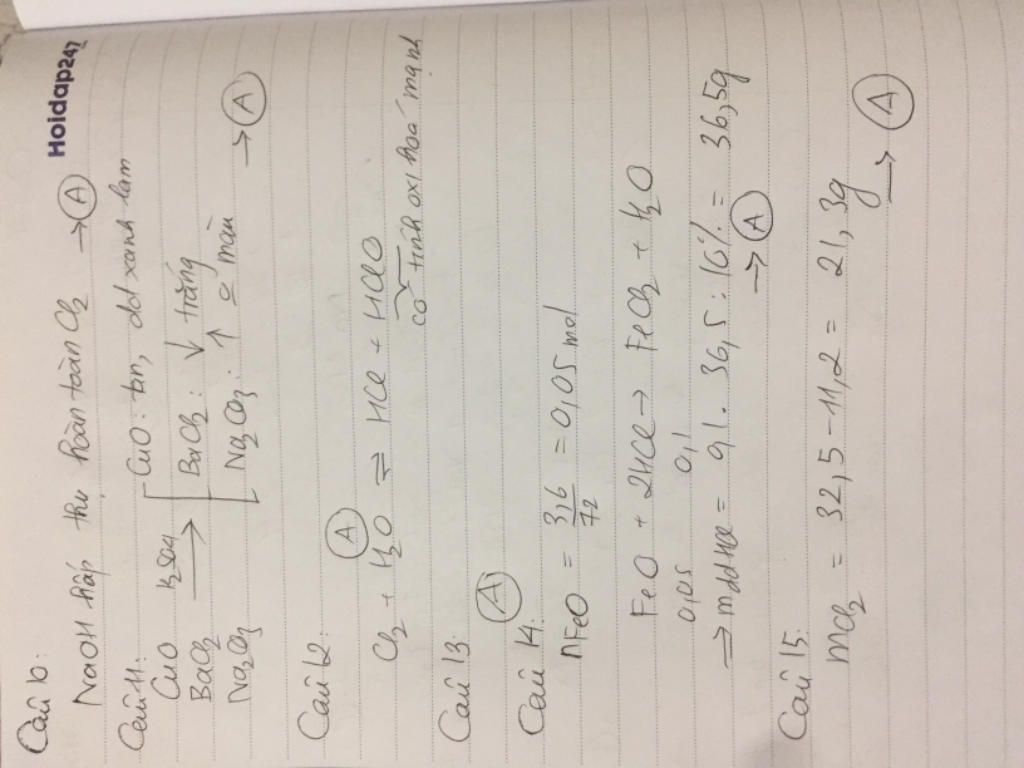 Hoidap247
Câu 10:
NaOH hấp thụ hoàn toàn Cl2 → A
Câu 11:
CuO H2SO4 CuO: tan, dd xanh lam
BaCl2 → BaCl2: ↓ trắng
Na2CO3 Na2CO3: ↑ o màu → A
Câu 12: A
Cl2 + H2O ⇌ HCl + HClO
có tính oxi hoá mạnh
Câu 13: A
Câu 14:
nFeO = 3,6/72 = 0,05 mol
FeO + 2HCl → FeCl2 + H2O
0,05 0,1
⇒ mddHCl = 0,1. 36,5: 10% = 36,5g
→ A
Câu 15:
mCl2 = 32,5 - 11,2 = 21,3g
→ A